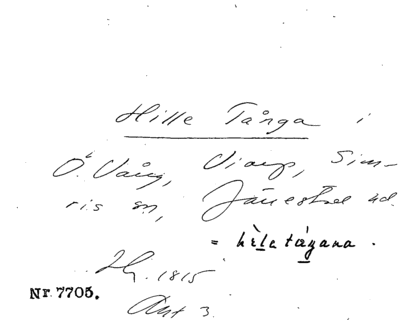 Hille Tånga i
Ö. Vång, Viarp, Sim-
ris sn, Järrestad hd.
= hèle táɡana.
1815
Nr. 7705.
Akt 3